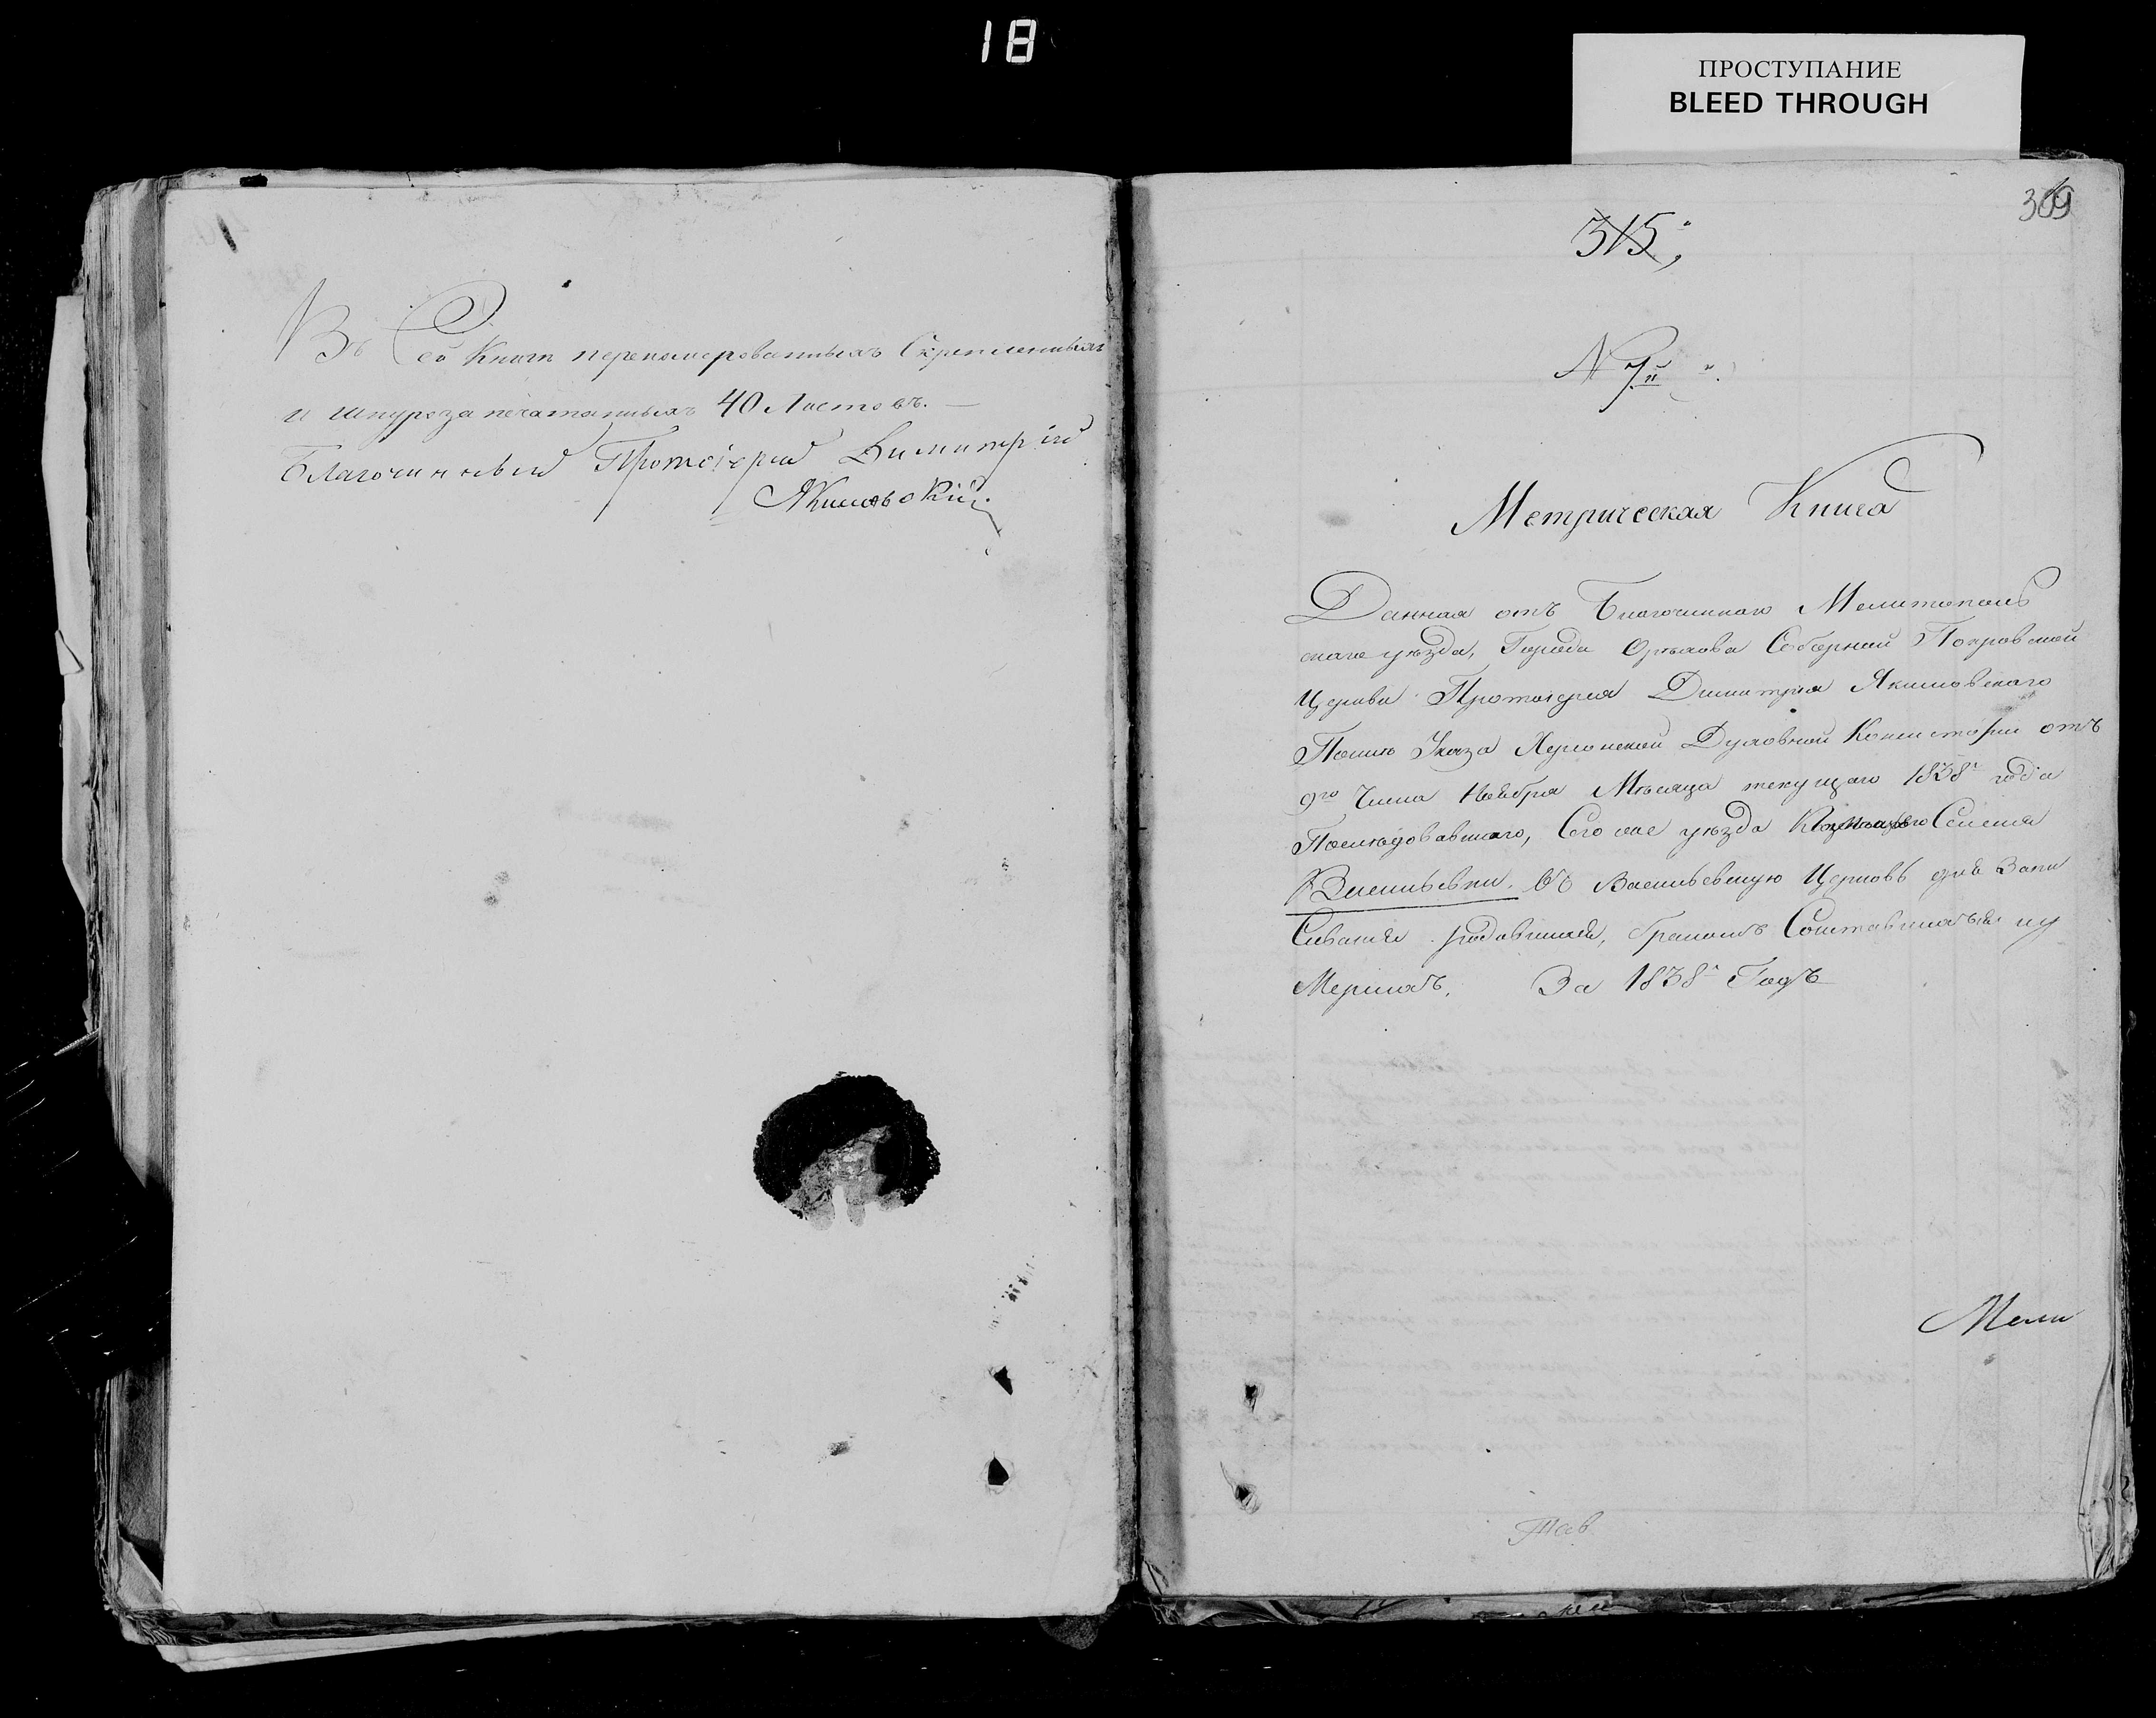 18
ПРОСТУПАНИЕ
BLEED THROUGH
Въ Сей Книги перепомерованныхъ Скрепленныхъ
и шнурозапечатанныхъ 40 Листовъ.—
Благочинный Протоіерей Димитрій
Якимовскій.
309
315,
№ 7й
Метрическая Книга
Данная отъ Благочиннаго Мелитополь
скаго уѣзда, Города Орѣхова Соборной Покровской
Церкви Протоіерея Димитрія Якимовскаго
Помию Указа Херсонской Духовной Консисторіи отъ
9го Числа Ноября Мѣсяца текущаго 1838г года
Послѣдовавшаго, Сего же уѣзда Казеннаго Селенія
Васильевки. Въ Васильевскую Церковь для Запи
Сыванія родившихся, бракомъ Сочетавшихся и у
Мершихъ. За 1838г Годъ
Мели
Тав